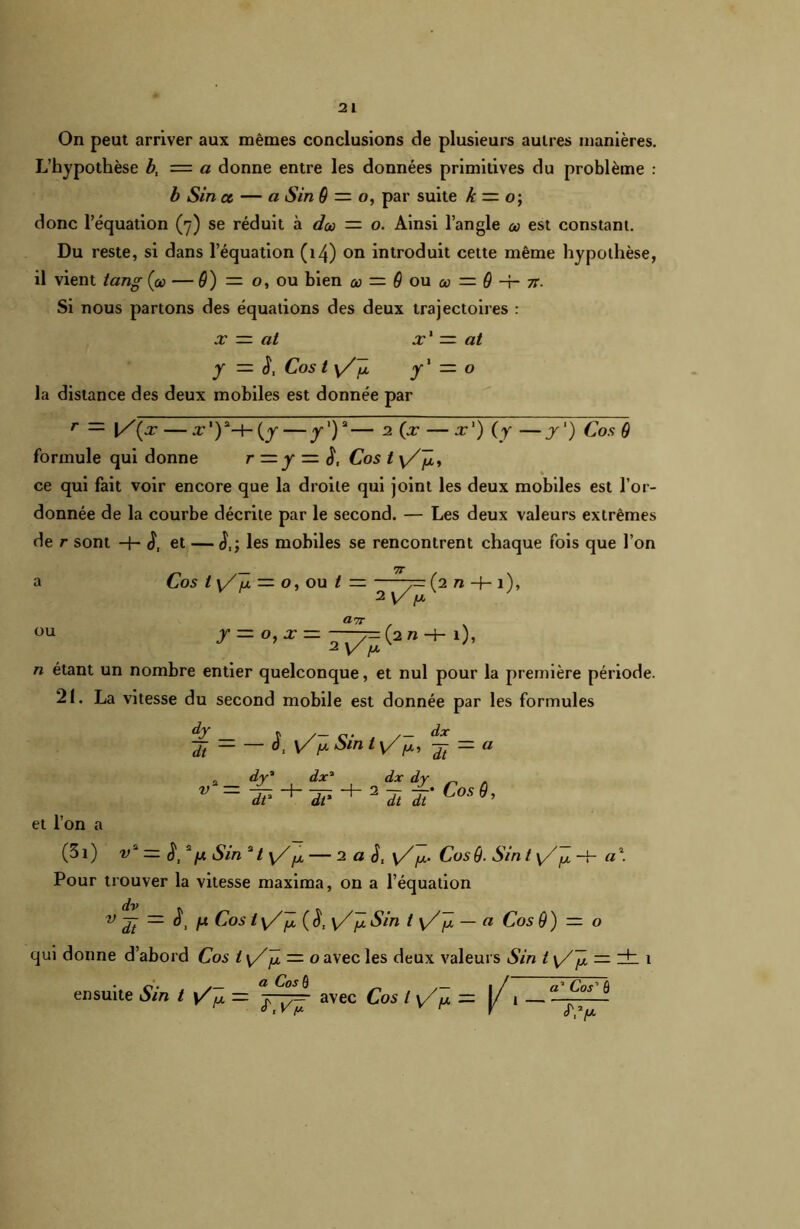 21
On peut arriver aux mêmes conclusions de plusieurs autres manières.
L'hypothèse b₁ = a donne entre les données primitives du problème :
b Sin α — a Sin θ = o, par suite k = o;
donc l'équation (7) se réduit à dω = o. Ainsi l'angle ω est constant.
Du reste, si dans l'équation (14) on introduit cette même hypothèse,
il vient tang (ω — θ) = o, ou bien ω = θ ou ω = θ + π.
Si nous partons des équations des deux trajectoires :
x = at x' = at
y = δ₁ Cos t √μ y' = o
la distance des deux mobiles est donnée par
r = √(x — x')² + (y — y')² — 2 (x — x') (y — y') Cos θ
formule qui donne r = y = δ₁ Cos t √μ,
ce qui fait voir encore que la droite qui joint les deux mobiles est l'or-
donnée de la courbe décrite par le second. — Les deux valeurs extrêmes
de r sont + δ₁ et — δ₁; les mobiles se rencontrent chaque fois que l'on
a Cos t √μ = o, ou t = π/(2 √μ) (2 n + 1),
ou y = o, x = aπ/(2 √μ) (2 n + 1),
n étant un nombre entier quelconque, et nul pour la première période.
21. La vitesse du second mobile est donnée par les formules
dy/dt = — δ₁ √μ Sin t √μ, dx/dt = a
v² = dy²/dt² + dx²/dt² + 2 dx/dt dy/dt. Cos θ,
et l'on a
(31) v² = δ₁² μ Sin² t √μ — 2 a δ₁ √μ. Cos θ. Sin t √μ + a².
Pour trouver la vitesse maxima, on a l'équation
v dv/dt = δ₁ μ Cos t √μ (δ₁ √μ Sin t √μ — a Cos θ) = o
qui donne d'abord Cos t √μ = o avec les deux valeurs Sin t √μ = ± 1
ensuite Sin t √μ = a Cos θ/(δ₁ √μ) avec Cos t √μ = √(1 — a² Cos² θ/(δ₁² μ))